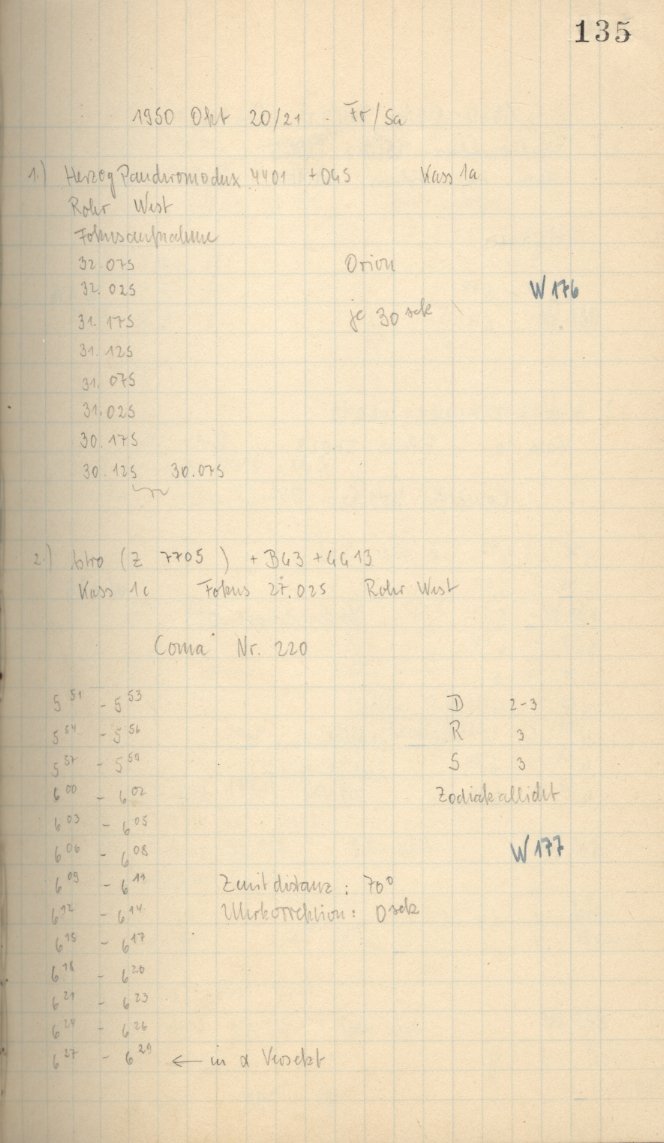 135
1950 Okt 20/21 - Fr/Sa
1) Herzog Panchromodux 4401 + OG5 Kass 1a
Rohr West
Fokusaufnahme
32.075 Orion
32.025 W 176
31.175 je 30 sek
31.125
31.075
31.025
30.175
30.125 30.075
2.) (Z 7705 ) + BG3 + GG13
Kass 1c Fokus 27.025 Rohr West
Coma Nr. 220
5 51 - 5 53 D 2-3
5 54 - 5 56 R 3
5 57 - 5 59 S 3
6 00 - 6 02 Zodiakallicht
6 03 - 6 05
6 06 - 6 08 W 177
6 09 - 6 11 Zenitdistanz : 70°
6 12 - 6 14 Uhrkorrektion : 0 sek
6 15 - 6 17
6 18 - 6 20
6 21 - 6 23
6 24 - 6 26
6 27 - 6 29 ← in α Versetzt